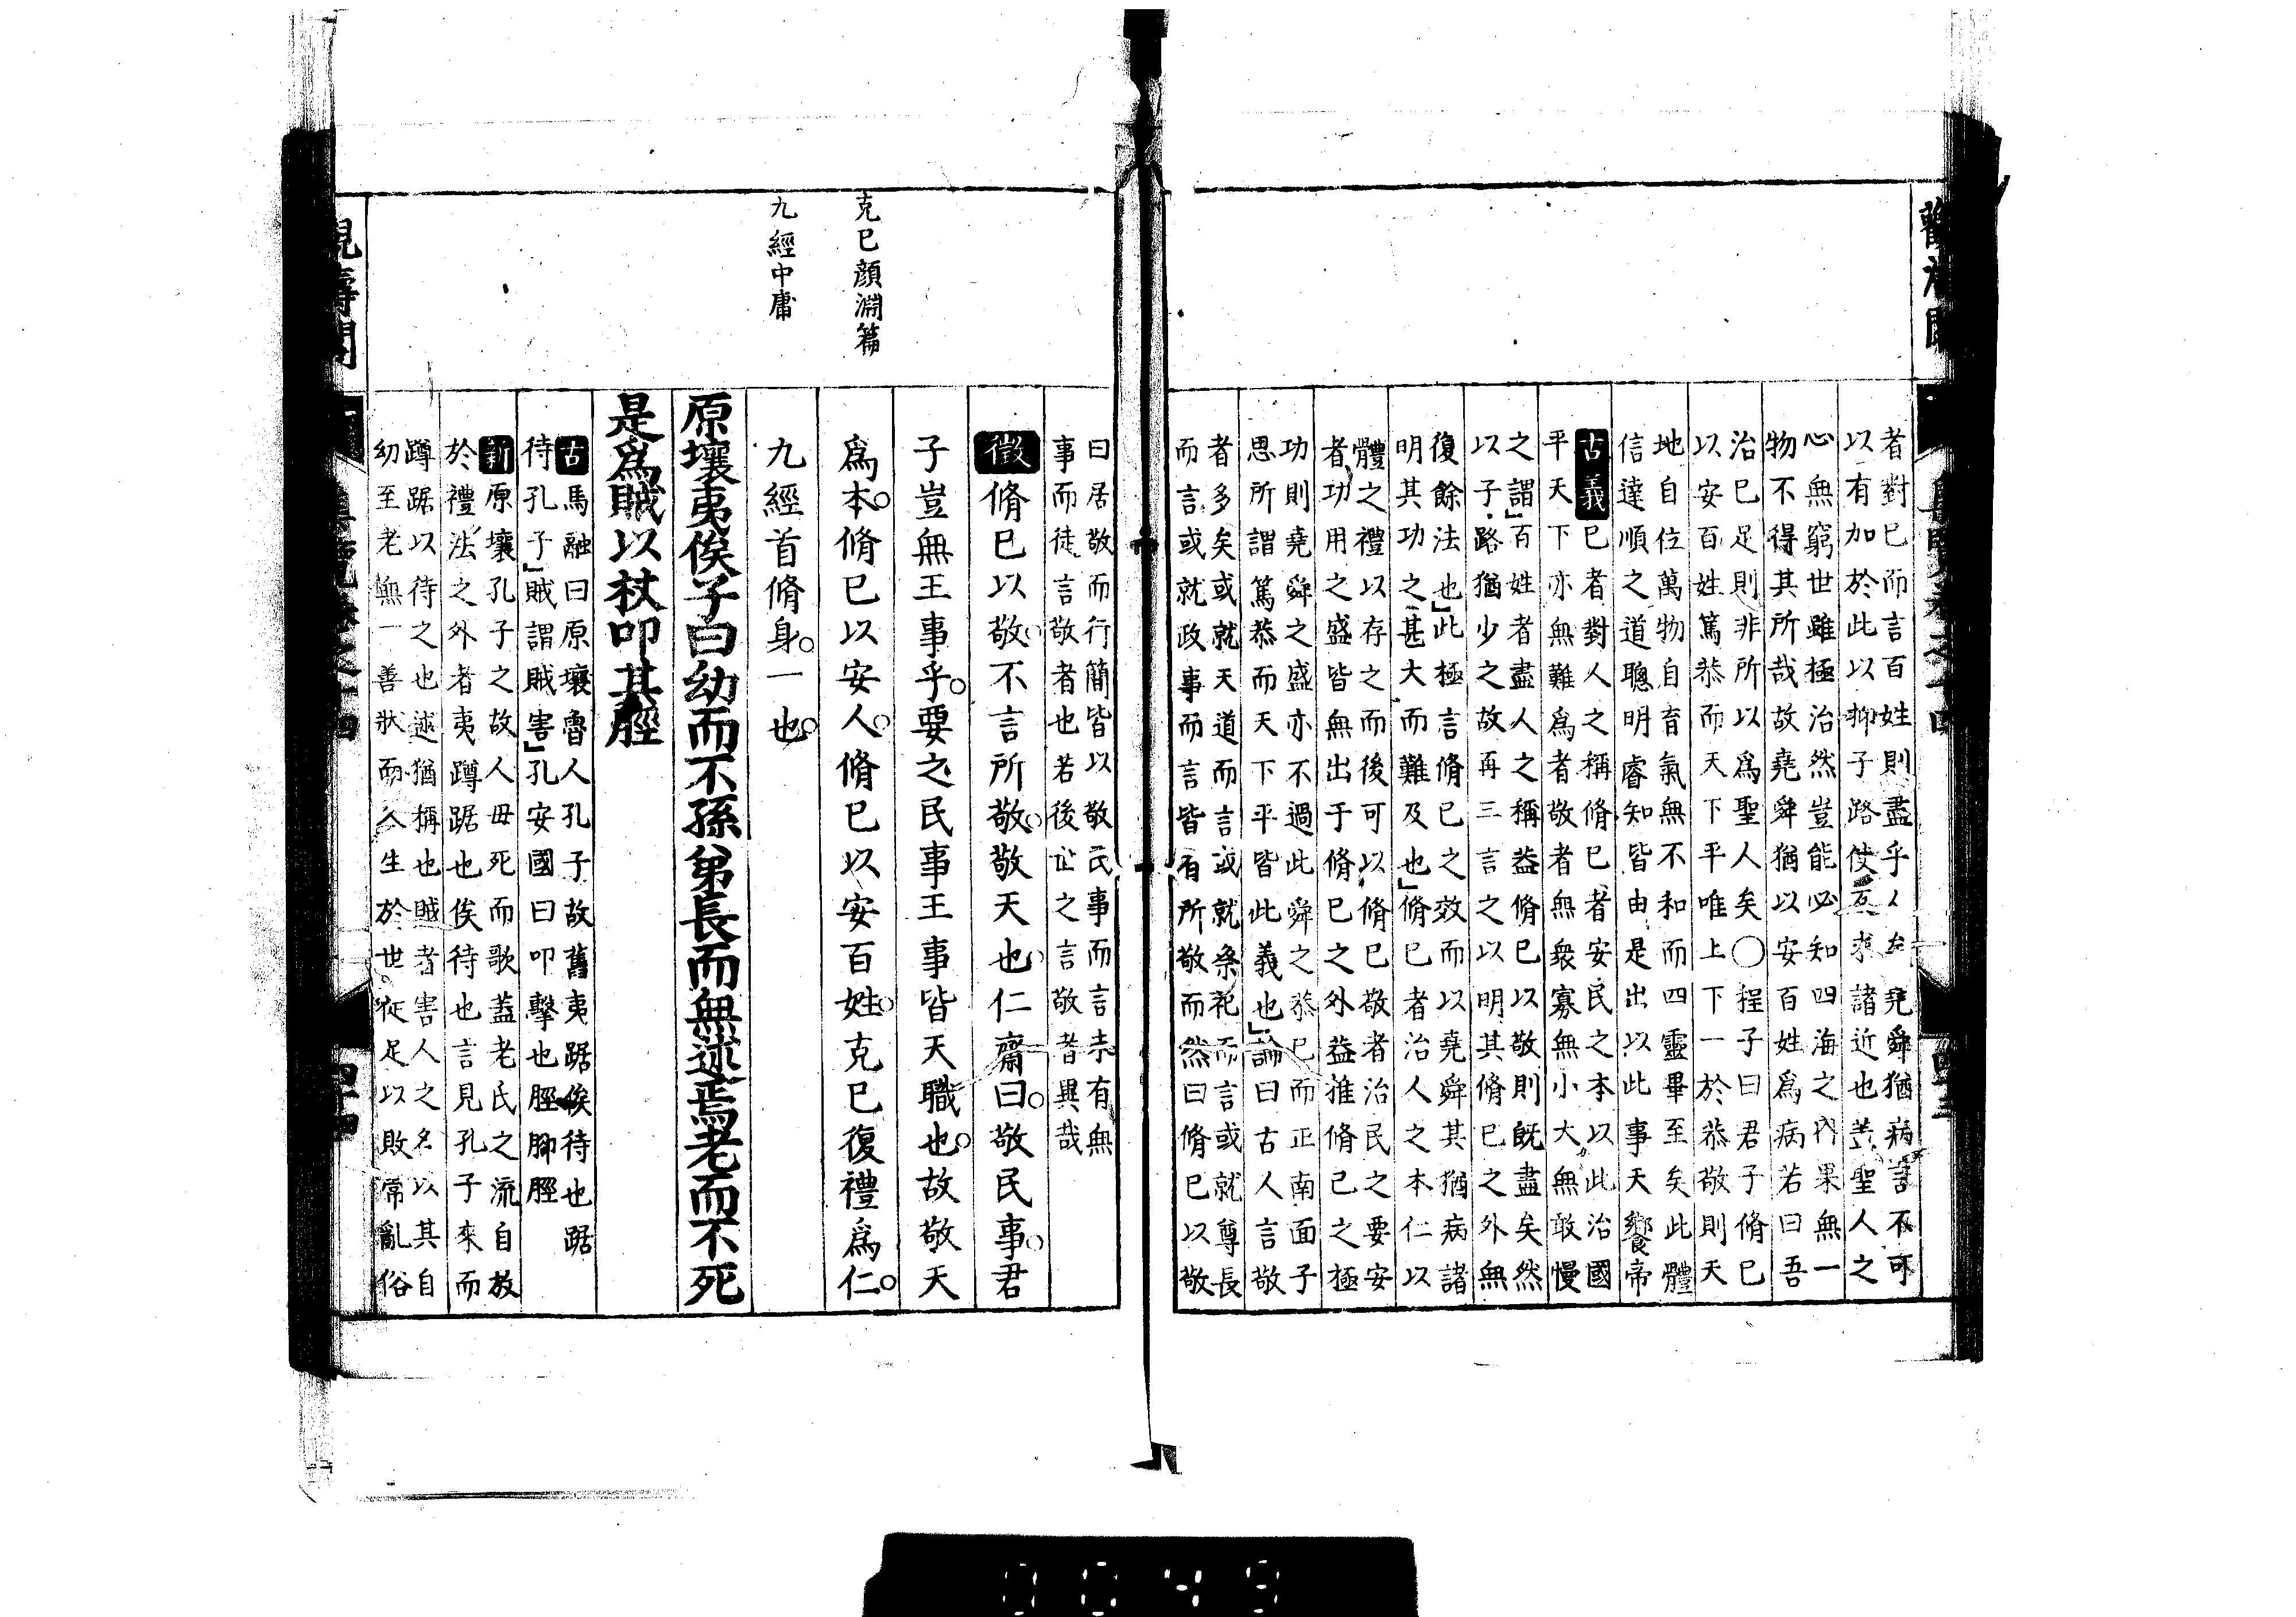 者對已而言百姓則盡乎人矣堯舜猶病言不可
以有加於此以抑子路使反求諸近也蓋聖人之
心無窮世雖極治然豈能必知四海之內果無一
物不得其所哉故堯舜猶以安百姓爲病若曰吾
治已足則非所以爲聖人矣○程子曰君子脩已
以安百姓篤恭而天下平唯上下一於恭敬則天
地自位萬物自育氣無不和而四靈畢至矣此體
信達順之道聰明睿知皆由是出以此事天饗帝
古義已者對人之稱脩已者安民之本以此治國
平天下亦無難爲者敬者無衆寡無小大無敢慢
之謂」百姓者盡人之稱益脩已以敬則旣盡矣然
以子路猶少之故再三言之以明其脩已之外無
復餘法也」此極言脩已之效而以堯舜其猶病諸
明其功之甚大而難及也」脩已者治人之本仁以
體之禮以存之而後可以脩已敬者治民之要安
者功用之盛皆無出于脩已之外益推脩已之極
功則堯舜之盛亦不過此舜之恭已而正南面子
思所謂篤恭而天下平皆此義也」論曰古人言敬
者多矣或就天道而言或就祭祀而言或就尊長
而言或就政事而言皆有所敬而然曰脩已以敬
曰居敬而行簡皆以敬民事而言未有無
事而徒言敬者也若後世之言敬者異哉
徵脩已以敬不言所敬敬天也仁齋曰敬民事君
子豈無王事乎要之民事王事皆天職也故敬天
爲本脩已以安人脩已以安百姓克已復禮爲仁
克已顏淵篇
九經首脩身一也
九經中庸
原壤夷俟子曰幼而不孫弟長而無述焉老而不死
是爲賊以杖叩其脛
古馬融曰原壤魯人孔子故舊夷踞俟待也踞
待孔子」賊謂賊害」孔安國曰叩擊也脛腳脛
新原壤孔子之故人毋死而歌蓋老氏之流自放
於禮法之外者夷蹲踞也俟待也言見孔子來而
蹲踞以待之也述猶稱也賊者害人之名以其自
幼至老無一善狀而久生於世徒足以敗常亂俗